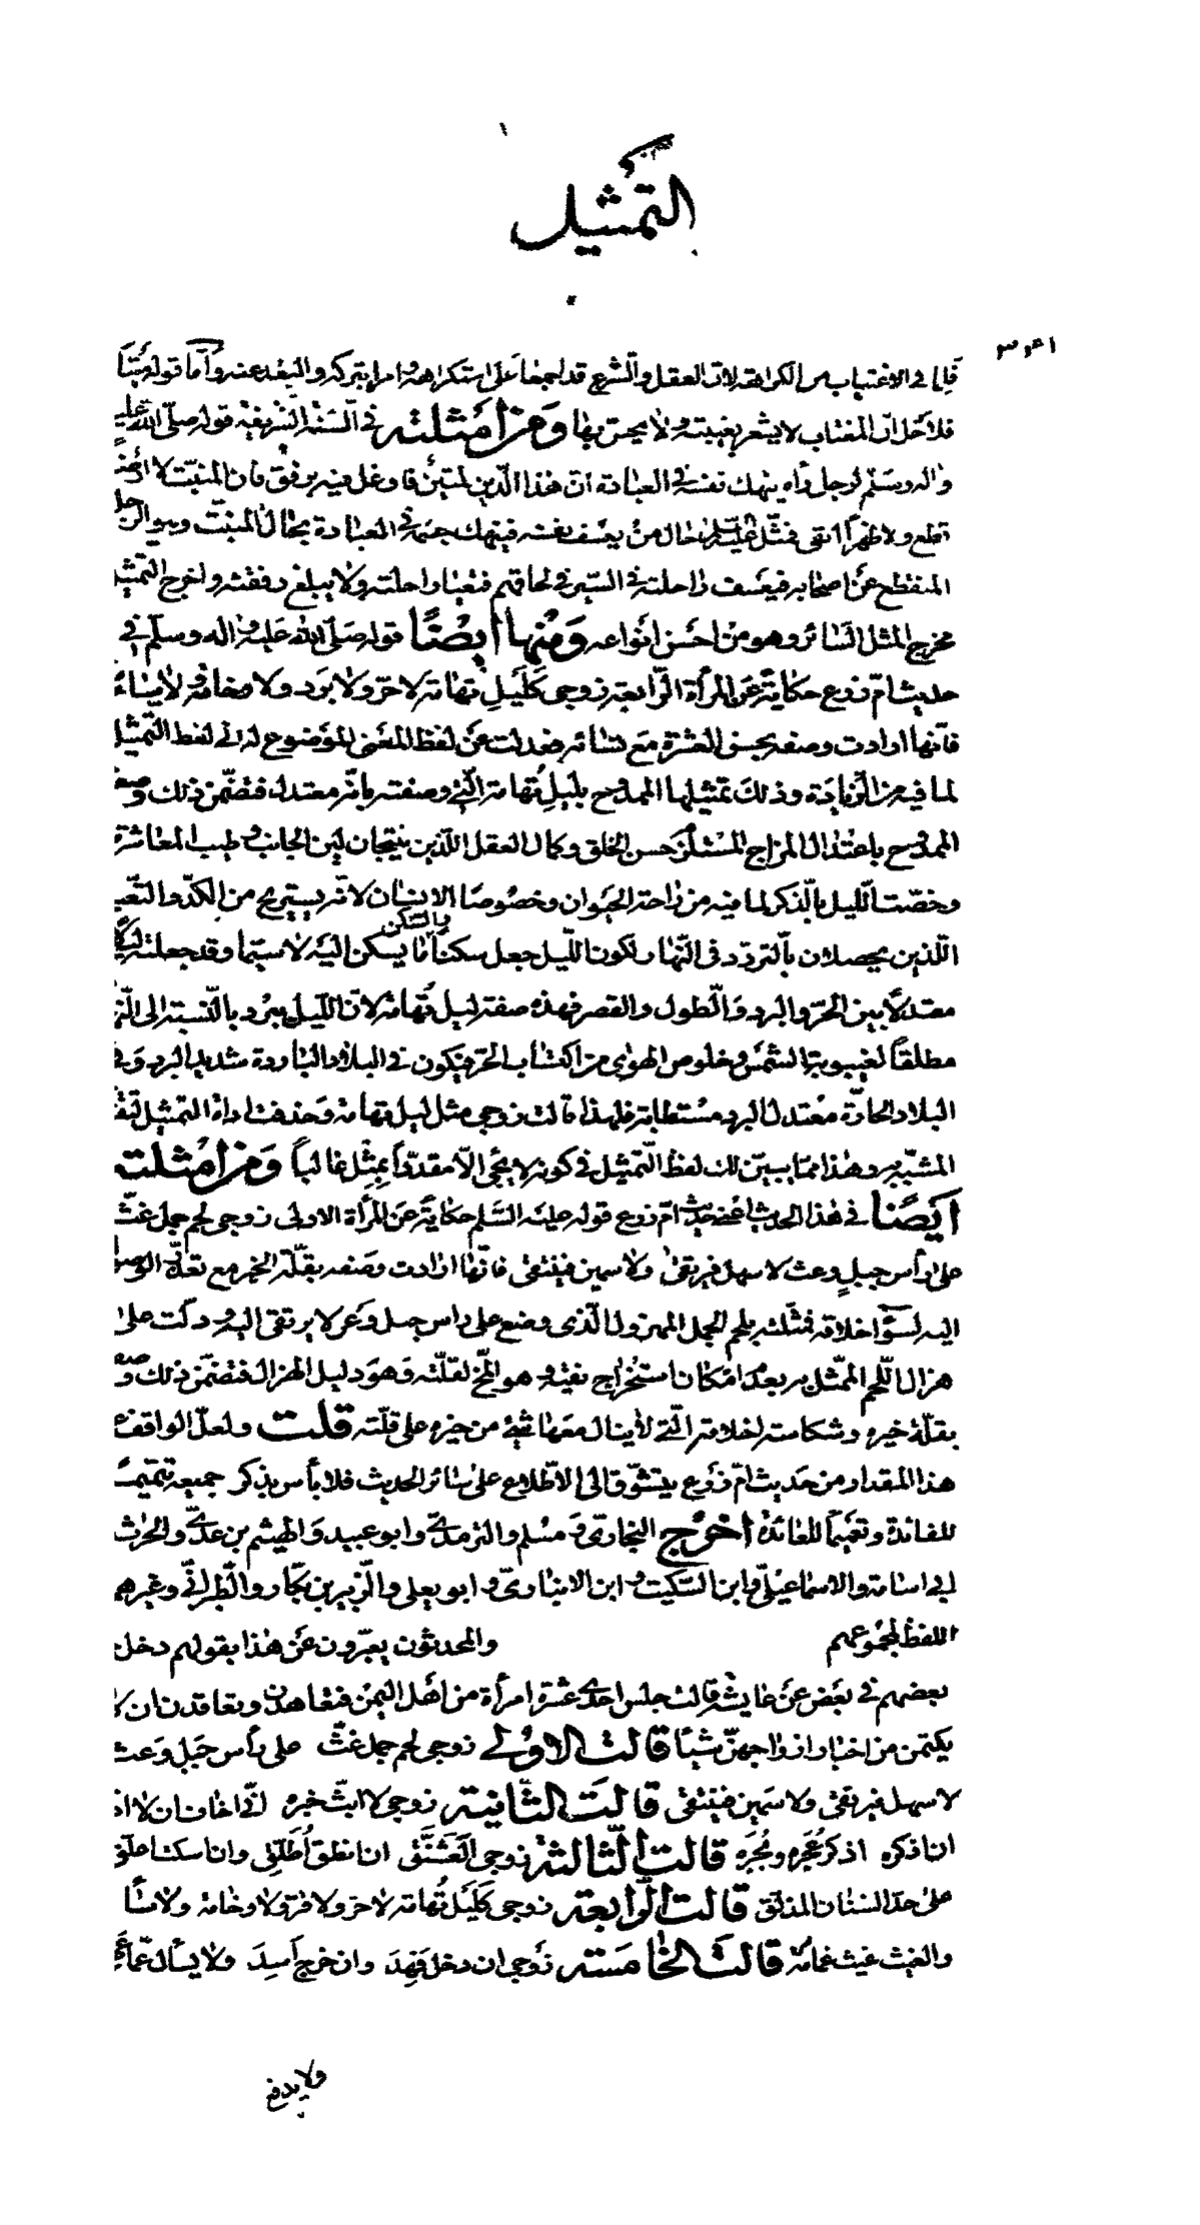 التمثيل
فلما في الاغتياب من الكراهة لان العقل والشرع قد اجمعا على استكراهه وامرا بتركه والبعد عنه واما قوله ميتا
فلاجل ان المغتاب لا يشعر بغيبته ولا يحس بها ومن امثلته في السنة الشريفة قوله صلى الله عليه
واله وسلم لرجل رآه ينهك نفسه في العبادة ان هذا الدين لمتين فاوغل فيه برفق فان المنبت لا ارضا
قطع ولا ظهرا ابقى فمثل عليه السلام حال من يعسف نفسه فينهك جسمه في العبادة بحال المنبت وهو الرجل
المنقطع عن اصحابه فيعسف راحلته في السير في لحاقهم فتعيا راحلته ولا يبلغ رفقته واخرج التمثيل
مخرج المثل السائر وهو من احسن انواعه ومنها ايضا قوله صلى الله عليه واله وسلم في
حديث ام زرع حكاية عن المرأة الرابعة زوجي كليل تهامة لا حر ولا برد ولا مخافة ولا سآمة
فانها ارادت وصفه بحسن العشرة مع نسائه فعدلت عن لفظ المعنى الموضوع له الى لفظ التمثيل
لما فيه من الزيادة وذلك تمثيلها الممدوح بليل تهامة الذي وصفته بانه معتدل فتضمن ذلك وصف
الممدوح باعتدال المزاج المستلزم حسن الخلق وكمال العقل اللذين ينتجان لين الجانب وطيب المعاشرة
وخصت الليل بالذكر لما فيه من راحة الحيوان وخصوصا الانسان لانه يستريح من الكد والتعب
اللذين يحصلان بالتردد في النهار ولكون الليل جعل سكنا بالسكن ما يسكن اليه لا سيما وقد جعلته ليلا
معتدلا بين الحر والبرد والطول والقصر فهذه صفة ليل تهامة لان الليل يبرد بالنسبة الى النهار
مطلقا لغيبوبة الشمس وخلوص الهواء من اكتساب الحر فيكون في البلاد الباردة شديد البرد وفي
البلاد الحارة معتدل البرد مستطابه فلهذا قالت زوجي مثل ليل تهامة وحذفت اداة التمثيل
المشبه به وهذا مما يبين لك لفظ التمثيل في كونه لا يجئ الا مقدرا بمثل غالبا ومن امثلته
ايضا في هذا الحديث اعني حديث ام زرع قوله عليه السلام حكاية عن المرأة الاولى زوجي لحم جمل غث
على رأس جبل وعث لا سهل فيرتقى ولا سمين فينتقى فانها ارادت وصفه بقلة الخير مع تعذر الوصول
اليه لسوء اخلاقه فمثلته بلحم الجمل المهزول الذي وضع على راس جبل وعر لا يرتقى اليه ودلت على
هزال اللحم الممثل به بعدم امكان استخراج نقيه وهو المخ لقلته وهو دليل الهزال فتضمن ذلك وصفه
بقلة خيره وشكاسة اخلاقه التي لا ينال معها شيء من خيره على قلته قلت ولعل الواقف
هذا المقدار من حديث ام زرع يتشوق الى الاطلاع على سائر الحديث فلا بأس بذكر جميعه تتميما
للفائدة وتعميما للعائدة اخرج البخاري ومسلم والترمذي وابو عبيد والهيثم بن عدي والحارث
ابي اسامة والاسماعيلي وابن السكيت وابن الانباري وابو يعلى والزبير بن بكار والطبراني وغيرهم
اللفظ لمجموعهم والمحدثون يعبرون عن هذا بقولهم دخل
بعضهم في بعض عن عايشة قالت جلس احدى عشرة امرأة من اهل اليمن فتعاهدن وتعاقدن ان لا
يكتمن من اخبار ازواجهن شيئا قالت الاولى زوجي لحم جمل غث على رأس جبل وعث
لا سهل فيرتقى ولا سمين فينتقى قالت الثانية زوجي لا ابث خبره اني اخاف ان لا اذره
ان اذكره اذكر عجره وبجره قالت الثالثة زوجي العشنق ان انطق اطلق وان اسكت اعلق
على حد السنان المذلق قالت الرابعة زوجي كليل تهامة لا حر ولا قر ولا وخامة ولا سآ
والغيث غيث غمامة قالت الخامسة زوجي ان دخل فهد وان خرج أسد ولا يسأل عما عهد
ولا يرفع